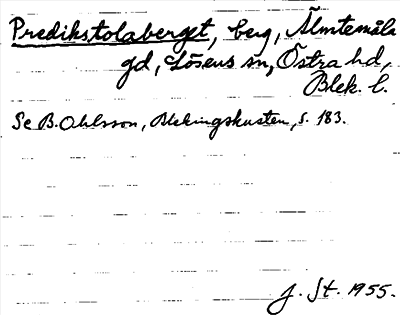 Predikstolaberget, berg, Älmtemåla
gd, Lösens sn, Östra hd,
Blek. l.
Se B. Ohlsson, Blekingskusten, s. 183.
J. St. 1955.